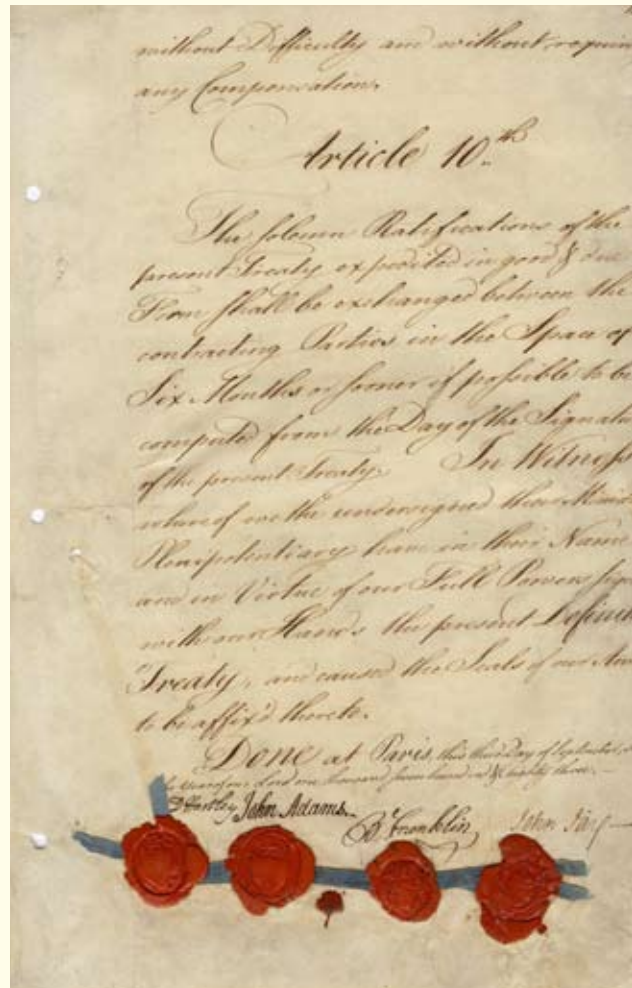 without Difficulty and without requiring
any Compensation.
Article 10.th
The solemn Ratifications of the
present Treaty expedited in good & due
Form shall be exchanged between the
contracting Parties in the Space of
Six Months or sooner if possible to be
computed from the Day of the Signatu
of the present Treaty. In Witness
whereof we the undersigned their Minis
Plenipotentiary have in their Name
and in Virtue of our Full Powers sig
with our Hands the present Definit
Treaty, and caused the Seals of our Arm
to be affix'd thereto.
Done at Paris, this third Day of September,
the Year of our Lord one thousand seven hundred & eighty three.—
D Hartley John Adams. B Franklin John Jay